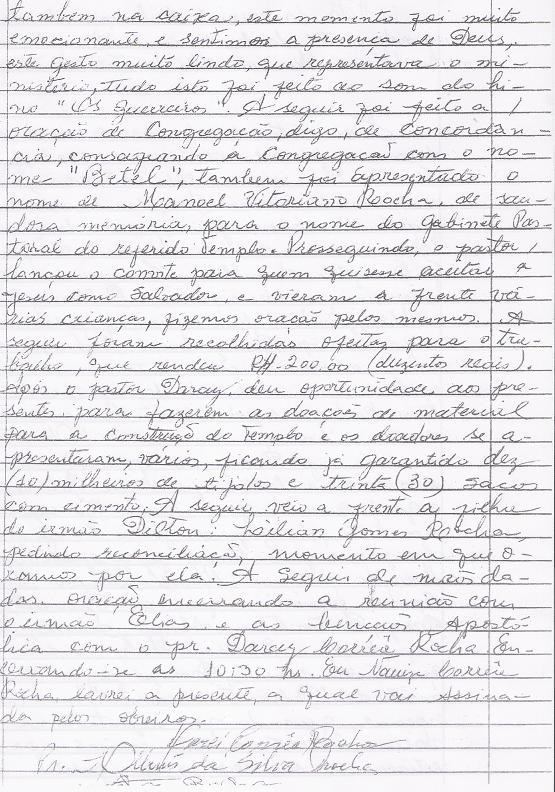 também na caixa, este momento foi muito
emocionante, e sentimos a presença de Deus,
este gesto muito lindo, que representava o mi-
nistério, tudo isto foi feito ao som do hi-
no "Os Guerreiros". A seguir foi feito a
oração de Congregação, digo, de Concordân-
cia, consagrando a Congregação com o no-
me "Betel", também foi apresentado o
nome de Manoel Vitoriano Rocha, de sau-
dosa memória, para o nome do Gabinete Pas-
toral do referido Templo. Prosseguindo, o pastor,
lançou o convite para quem quisesse aceitar a
Jesus como Salvador, e vieram a frente vá-
rias crianças, fizemos oração pelos mesmos. A
seguir foram recolhidas ofertas para o tra-
balho, que rendeu R$ 200,00 (duzentos reais).
Após o pastor Darcy, deu oportunidade ao pre-
sentes para fazerem as doações de material
para a construção do Templo e os doadores se a-
presentaram, vários, ficando já garantido dez
(10) milheiros de tijolos e trinta (30) sacos
com cimento. A seguir veio a frente a filha
do irmão Dilton: Lilian Gomes Rocha,
pedindo reconciliação, momento em que o-
ramos por ela. A Seguir de mãos da-
das. oração encerrando a reunião com
o irmão Elias e as bençãos Apostó-
lica com o pr. Darcy Corrêa Rocha En-
cerrando-se as 10:30 hs. Eu Corrêa
Rocha lavrei a presente, a qual vai Assina-
da pelos obreiros.
Corrêa Rocha
Pr. da Silva Rocha